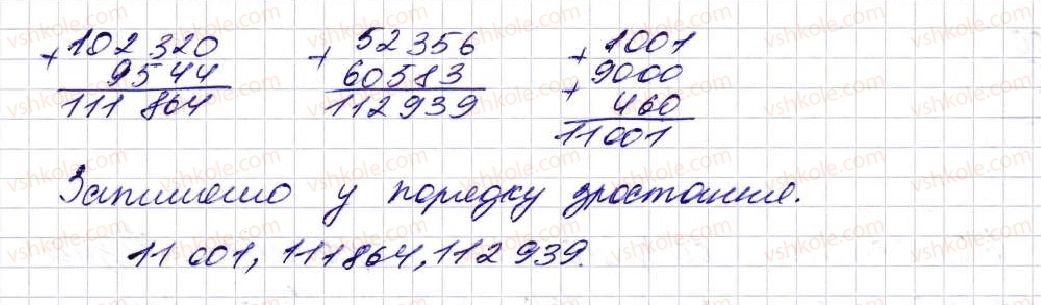 102 320 + 9544 = 111 864
52356 + 60583 = 112939
1001 + 9000 + 460 = 11001
Запишемо у порядку зростання.
11 001, 111864, 112 939.